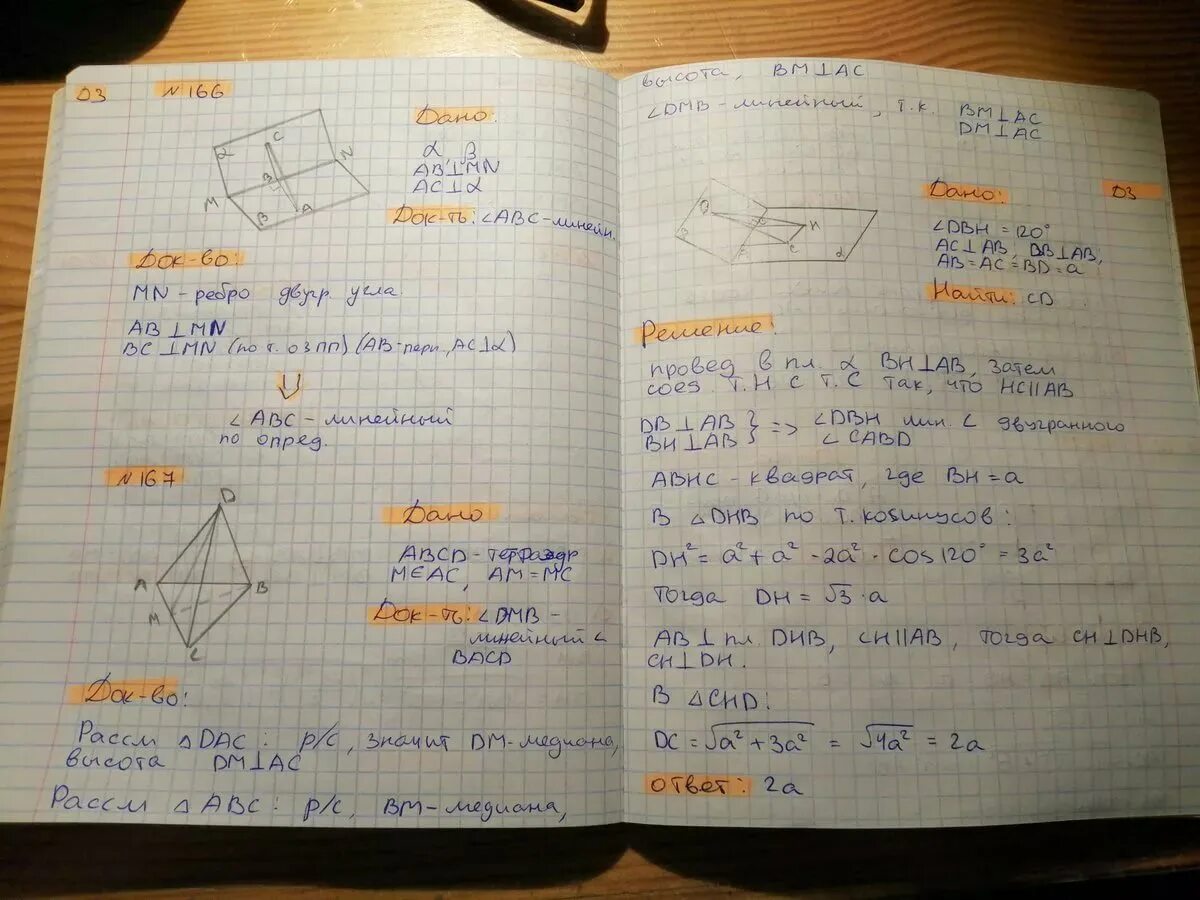 ДЗ
№166
Дано:
α, β
AB⊥MN
AC⊥α
Док-ть: ∠ABC-линейн.
C
α
N
B
M
β
A
Док-во:
MN - ребро двугр угла.
AB⊥MN
BC⊥MN (по т. о 3ПП) (AB-перп., AC⊥α)
⇓
∠ABC - линейный
по опред.
№167
D
A
B
M
C
Дано
ABCD - тетраэдр
M∈AC, AM=MC
Док-ть: ∠DMB -
линейный ∠
BACD
Док-во:
Рассм △DAC: р/с, значит DM-медиана,
высота DM⊥AC
Рассм △ABC: р/с, BM-медиана,
высота, BM⊥AC
∠DMB - линейный, т.к. BM⊥AC
DM⊥AC
ДЗ
Дано:
∠DBH = 120°
AC⊥AB, DB⊥AB,
AB=AC=BD=a
Найти: CD
D
H
β
C
α
Решение:
провед в пл. α BH⊥AB, затем
соед т. H с т. C так, что HC||AB
DB⊥AB
BH⊥AB } => ∠DBH лин. ∠ двугранного
∠CABD
ABHC - квадрат, где BH = a
В △DHB по т. косинусов:
DH² = a² + a² - 2a² · cos 120° = 3a²
Тогда DH = √3 · a
AB⊥ пл. DHB, CH||AB, тогда CH⊥DHB,
CH⊥DH.
В △CHD:
DC = √a² + 3a² = √4a² = 2a
Ответ: 2a